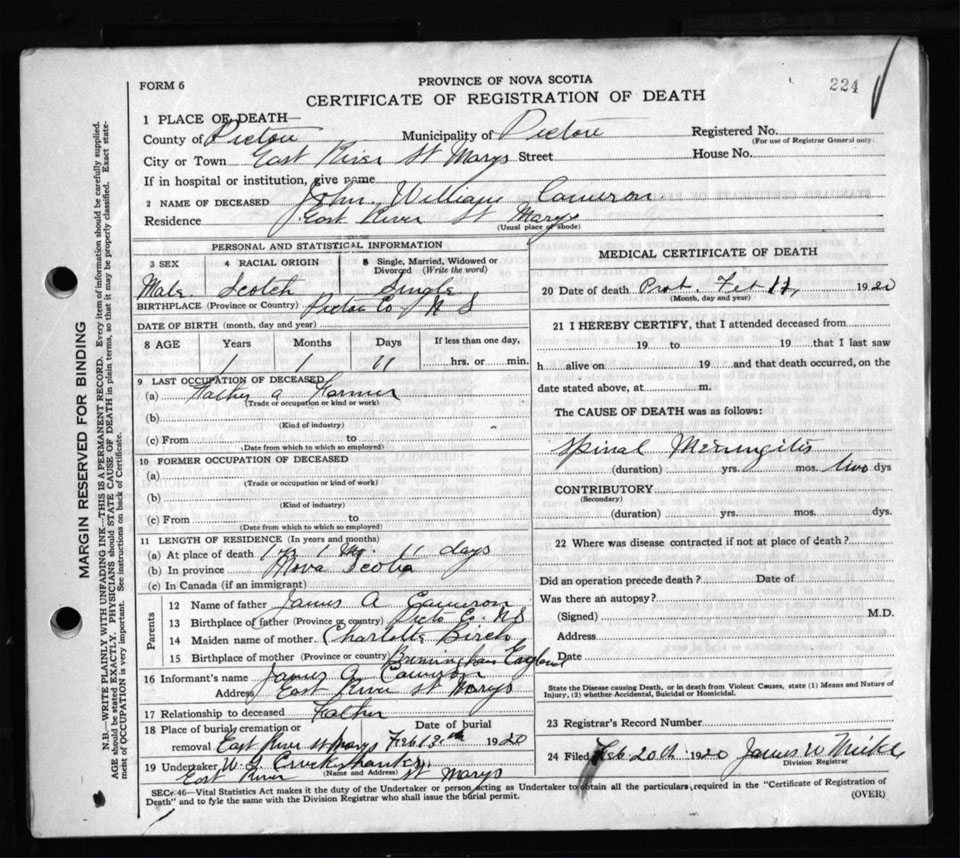 FORM 6
PROVINCE OF NOVA SCOTIA
224
CERTIFICATE OF REGISTRATION OF DEATH
1 PLACE OF DEATH—
County of Pictou Municipality of Pictou Registered No.
(For use of Registrar General only.
City or Town East River St Marys Street House No.
If in hospital or institution, give name
2 NAME OF DECEASED John William Cameron
Residence East River St Marys
(Usual place of abode)
PERSONAL AND STATISTICAL INFORMATION
3 SEX 4 RACIAL ORIGIN 5 Single, Married, Widowed or Divorced (Write the word)
Male. Scotch Single
BIRTHPLACE (Province or Country) Pictou Co N S
DATE OF BIRTH (month, day and year)
8 AGE Years Months Days If less than one day,
1 1 11 hrs. or min.
9 LAST OCCUPATION OF DECEASED
(a) Father a Farmer
(Trade or occupation or kind or work)
(b)
(Kind of industry)
(c) From to
(Date from which to which so employed)
10 FORMER OCCUPATION OF DECEASED
(a)
(Trade or occupation or kind of work)
(b)
(Kind of industry)
(c) From to
(Date from which to which so employed)
11 LENGTH OF RESIDENCE (In years and months)
(a) At place of death 1 yr 1 Mo. 11 days
(b) In province Nova Scotia
(c) In Canada (if an immigrant)
Parents
12 Name of father James A Cameron
13 Birthplace of father (Province or country) Picto Co. NS
14 Maiden name of mother Charlotte Birch
15 Birthplace of mother (Province or country) England
16 Informant's name James A. Cameron
Address East River St Marys
17 Relationship to deceased Father
18 Place of burial, cremation or removal East River St Marys Date of burial Feb 13th 1920
19 Undertaker W. Cruickshanks
(Name and Address)
East River St Marys
MEDICAL CERTIFICATE OF DEATH
20 Date of death Feb 1920
(Month, day and year)
21 I HEREBY CERTIFY, that I attended deceased from
19 to 19 that I last saw
h alive on 19 and that death occurred, on the
date stated above, at m.
The CAUSE OF DEATH was as follows:
Spinal Meningitis
(duration) yrs. mos. two dys
CONTRIBUTORY
(Secondary)
(duration) yrs. mos. dys.
22 Where was disease contracted if not at place of death?
Did an operation precede death? Date of
Was there an autopsy?
(Signed) M.D.
Address
Date
State the Disease causing Death, or in death from Violent Causes, state (1) Means and Nature of
Injury, (2) whether Accidental, Suicidal or Homicidal.
23 Registrar's Record Number
24 Filed Feb 20th 1920 James W
Division Registrar
SEC. 46—Vital Statistics Act makes it the duty of the Undertaker or person acting as Undertaker to obtain all the particulars required in the "Certificate of Registration of
Death" and to fyle the same with the Division Registrar who shall issue the burial permit.
(OVER)
MARGIN RESERVED FOR BINDING
N.B.—WRITE PLAINLY WITH UNFADING INK—THIS IS A PERMANENT RECORD. Every item of information should be carefully supplied.
AGE should be stated EXACTLY. PHYSICIANS should STATE CAUSE OF DEATH in plain terms, so that it may be properly classified. Exact state-
ment of OCCUPATION is very important. See instructions on back of Certificate.